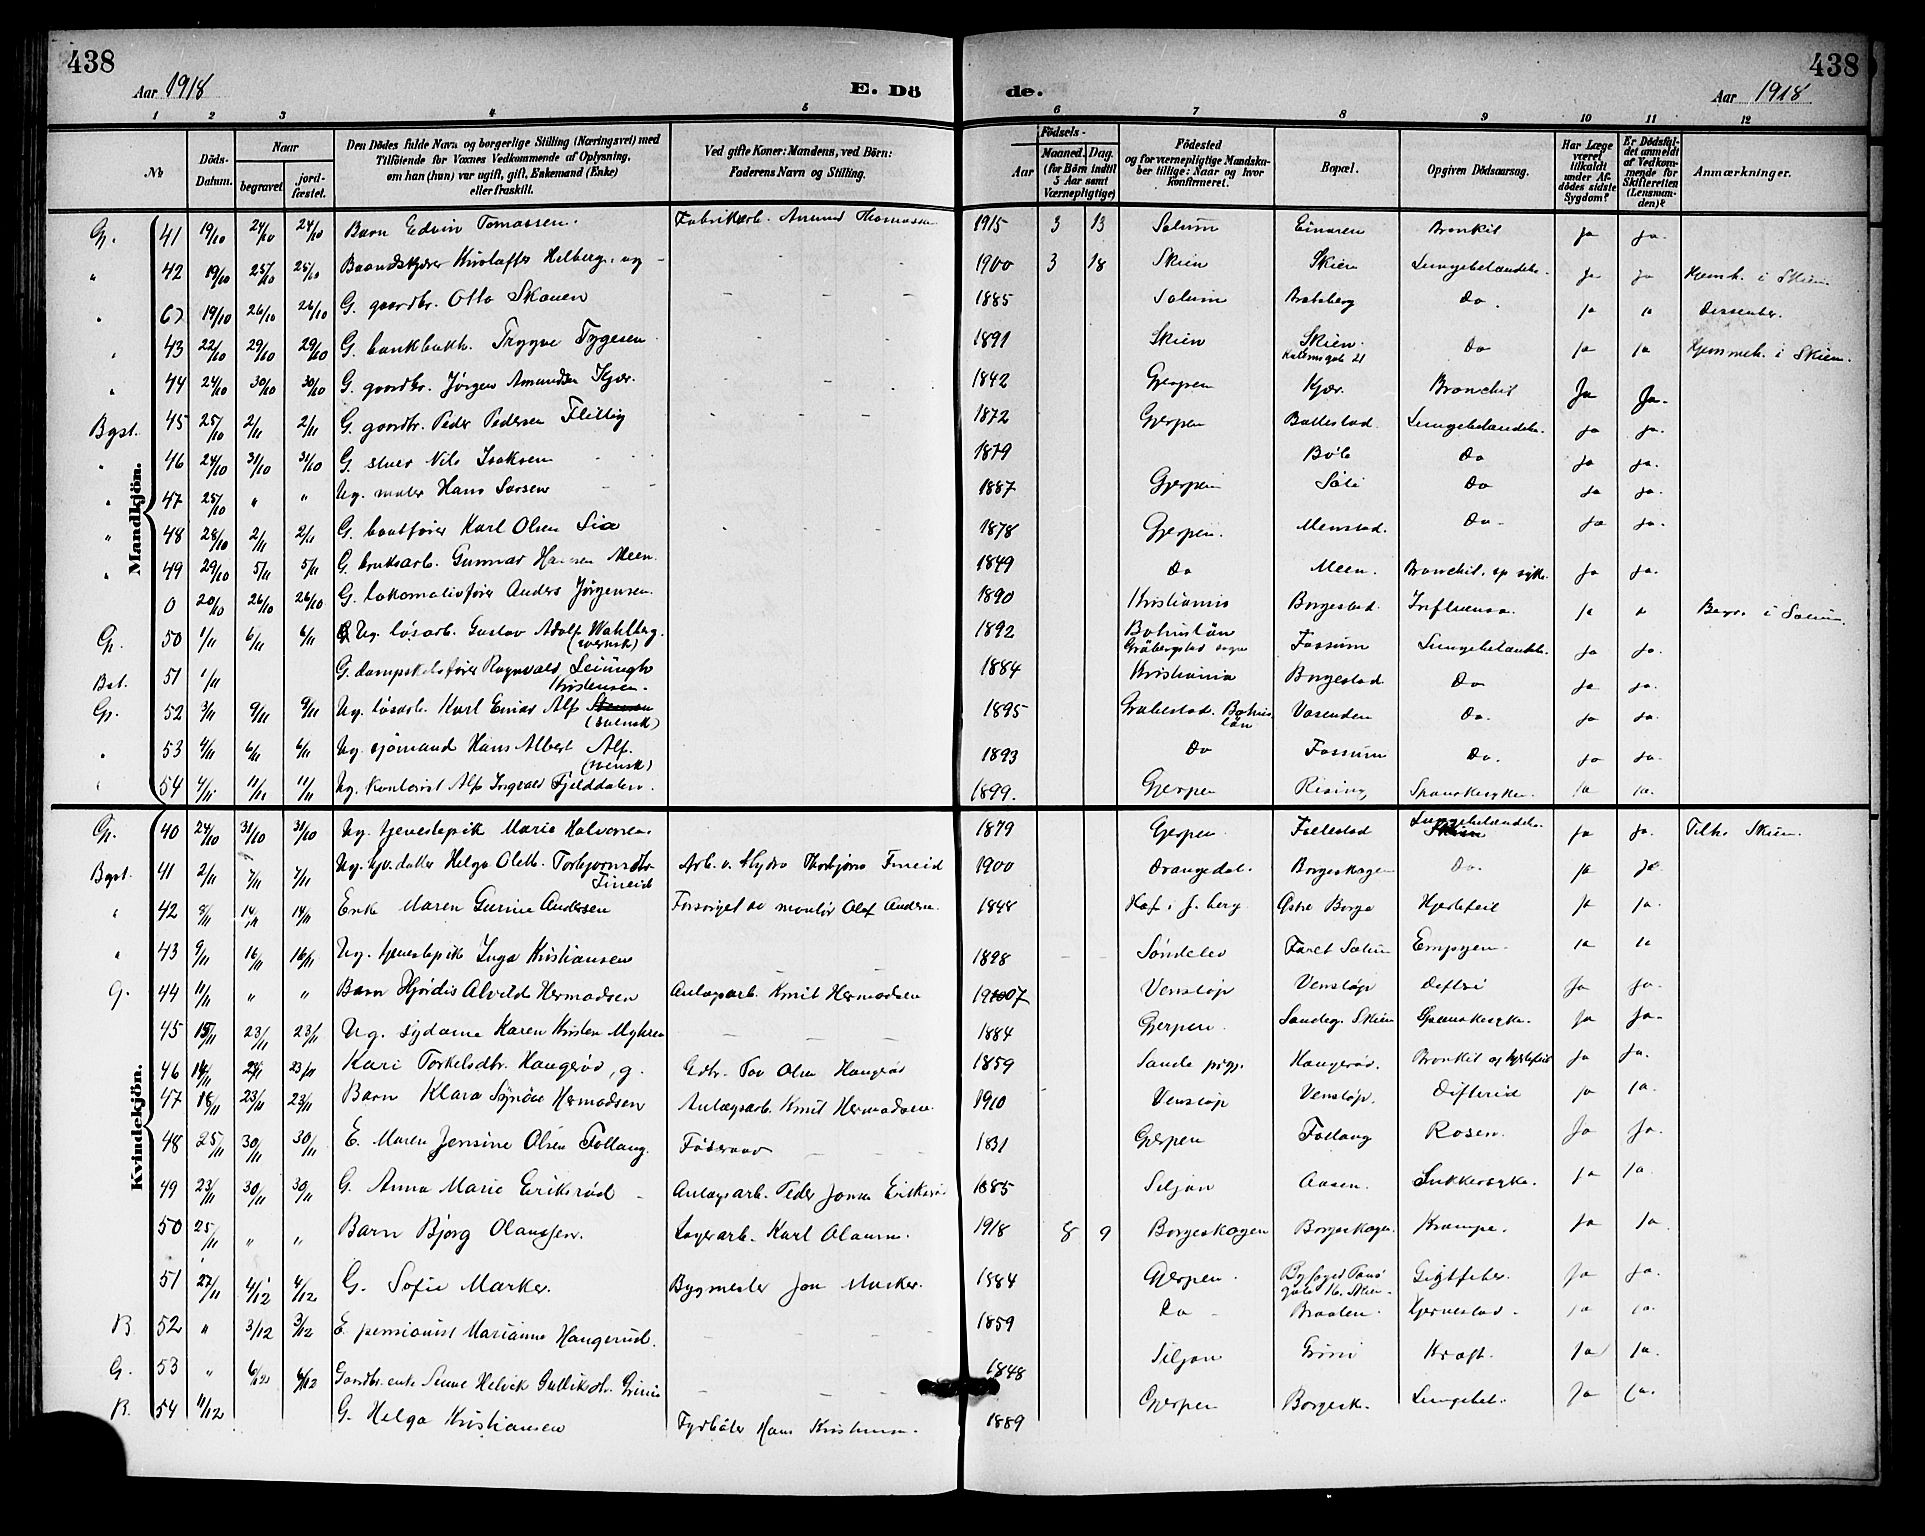 438
438
Aar 1918
E. Dö
de.
Aar 1918
1 2 3 4 5 6 7 8 9 10 11 12
No
Döds-Datum.
Naar
begravet
jord-fæstet.
Den Dödes fulde Navn og borgerlige Stilling (Næringsvei) med
Tilföiende for Voxnes Vedkommende af Oplysning,
om han (hun) var ugift, gift, Enkemand (Enke)
eller fraskilt.
Ved gifte Koner: Mandens, ved Börn:
Faderens Navn og Stilling.
Födsels-
Aar
Maaned. Dag.
(for Börn indtil
5 Aar samt
Værnepligtige)
Födested
og for værnepligtige Mandska-
ber tillige: Naar og hvor
konfirmeret.
Bopæl.
Opgiven Dödsaarsag.
Har Læge
været
tilkaldt
under Af-
dödes sidste
Sygdom?
Er Dödsfal-
det anmeldt
af Vedkom-
mende for
Skifteretten
(Lensman-
den)?
Anmærkninger.
Mandkjön.
Gp. 41 19/10 24/10 24/10 Barn Edvin Tomassen. Fabrikarb. Amund Thomassen 1915 3 13 Solum Einaren Bronkit ja ja.
" 42 19/10 25/10 25/10 Helberg, ug - 1900 3 18 Skien Skien Lungebetændelse ja ja Hjemh. i Skien.
" 19/10 26/10 26/10 G. gaardbr. Otto Skauen 1885 Solum Bratsberg Do. ja ja Dissenter.
" 43 22/10 29/10 29/10 G. bankbukh. Trygve Tygesen 1891 Skien Skien. Do ja ja Hjemmeh. i Skien.
" 44 24/10 30/10 30/10 G. gaardbr. Jørgen Amundsen Kjær. 1842 Gjerpen Kjær. Bronchit Ja Ja.
Bgst. 45 25/10 2/11 2/11 G. gaardbr. Peder Pedersen Flittig 1872 Gjerpen Ballestad. Lungebetændelse. ja ja.
" 46 24/10 31/10 31/10 G. stuer Nils Isaksen 1879 Bøle Do ja ja.
" 47 25/10 " " Ug. maler Hans Larsen 1887 Gjerpen Do ja ja.
" 48 28/10 2/11 2/11 G. baatfører Karl Olsen Lia 1878 Gjerpen. Menstad. Do - ja ja.
" 49 29/10 5/11 5/11 G. bruksarb. Gunnar Hansen Meen. 1849 Do Meen. ja ja.
0 20/10 26/10 26/10 G. lokomotivfører Anders Jørgensen. 1890 Kristiania Borgestad. Influensa. ja " Begr. i Solum.
Gp. 50 1/11 6/11 6/11 Ug. løsarb. Gustav Adolf Wahlberg. (svensk) 1892 Bohuslän Fossum Lungebetændelse. ja ja.
Bst. 51 1/11 G. dampskibsfører Ragnvald Kristensen. 1884 Kristiania Borgestad Do ja ja.
Gp. 52 3/11 9/11 9/11 Ug. løsarb. Karl Einar Alf (svensk) 1895 Bohuslän Do. ja ja.
" 53 4/11 6/11 6/11 Ug. sjømand Hans Albert Alf. (svensk) 1893 Do Fossum Do. ja ja.
" 54 4/11 11/11 11/11 Ug. kontorist Alf Ingvald Fjelddalen. 1899. Gjerpen Rising Spanskesyken. ja ja.
Kvindekjön.
Gp. 40 24/10 31/10 31/10 Ug. tjenestepik Marie Halvorsen. 1879 Gjerpen Follestad Lungebetændelse ja ja. Tilh. Skien.
Bgst. 41 2/11 7/11 7/11 Ug. datter Helga Torbjornsdtr. Fineid Arb. v. Hydro Thorbjørn Fineid 1900 Drangedal. Borgeskogen Do. ja ja
" 42 14/11 14/11 Enke Maren Gurine Andersen Forsørget av montør Olaf Andersen. 1848 Østre Borge Hjertefeil ja ja.
" 43 9/11 16/11 16/11 Ug. tjenestepik Inga Kristiansen 1898 Søndeled Empyem. ja ja
G. 44 11/11 " " Barn Hjørdis Alvilde Hermodsen Anlægsarb. Knut Hermodsen 1907 Venstøp Venstøp ja ja.
45 15/11 23/11 23/11 Ug. sydame Karen Kirsten Myhren 1884 Gjerpen. Spanskesyke. ja ja.
46 14/11 23/11 Kari Torkelsdtr. Haugerød, g. Gdbr. Tov Olsen Haugerød 1859 Haugerød. Bronkit og hjertefeil ja ja.
47 18/11 23/11 23/11 Barn Klara Synøve Hermodsen Anlægsarb. Knut Hermodsen 1910 Venstøp Venstøp. Difterid ja ja.
48 25/11 30/11 30/11 E. Maren Jensine Olsen Follaug. 1831 Gjerpen Follaug Rosen. Ja Ja.
49 23/11 30/11 30/11 G. Anna Marie Eriksrød Anlægsarb. Peder Jonsen Eriksrød 1885 Siljan Aasen. Sukkersyke. ja ja.
50 25/11 " " Barn Bjørg Olaussen. Lagerarb. Karl Olaussen. 1918 8 9 Borgeskogen Borgeskogen. Krampe. ja ja.
51 27/11 4/12 4/12 G. Sofie Marker. Bygmester Jon Marker. 1884 Gjerpen. Gigtfeber. ja ja.
B 52 " 3/12 3/12 E. pensionist Marianne Haugerud. 1859 Do - ja ja.
G. 53 " 6/12 6/12 Gaardbr. enke 1848 Siljan Grini Kræft. ja ja.
B. 54 11/12 G. Helga Kristiansen Fyrbøter Hans Kristiansen. 1889 Gjerpen Borgesk. Lungebet. ja ja.